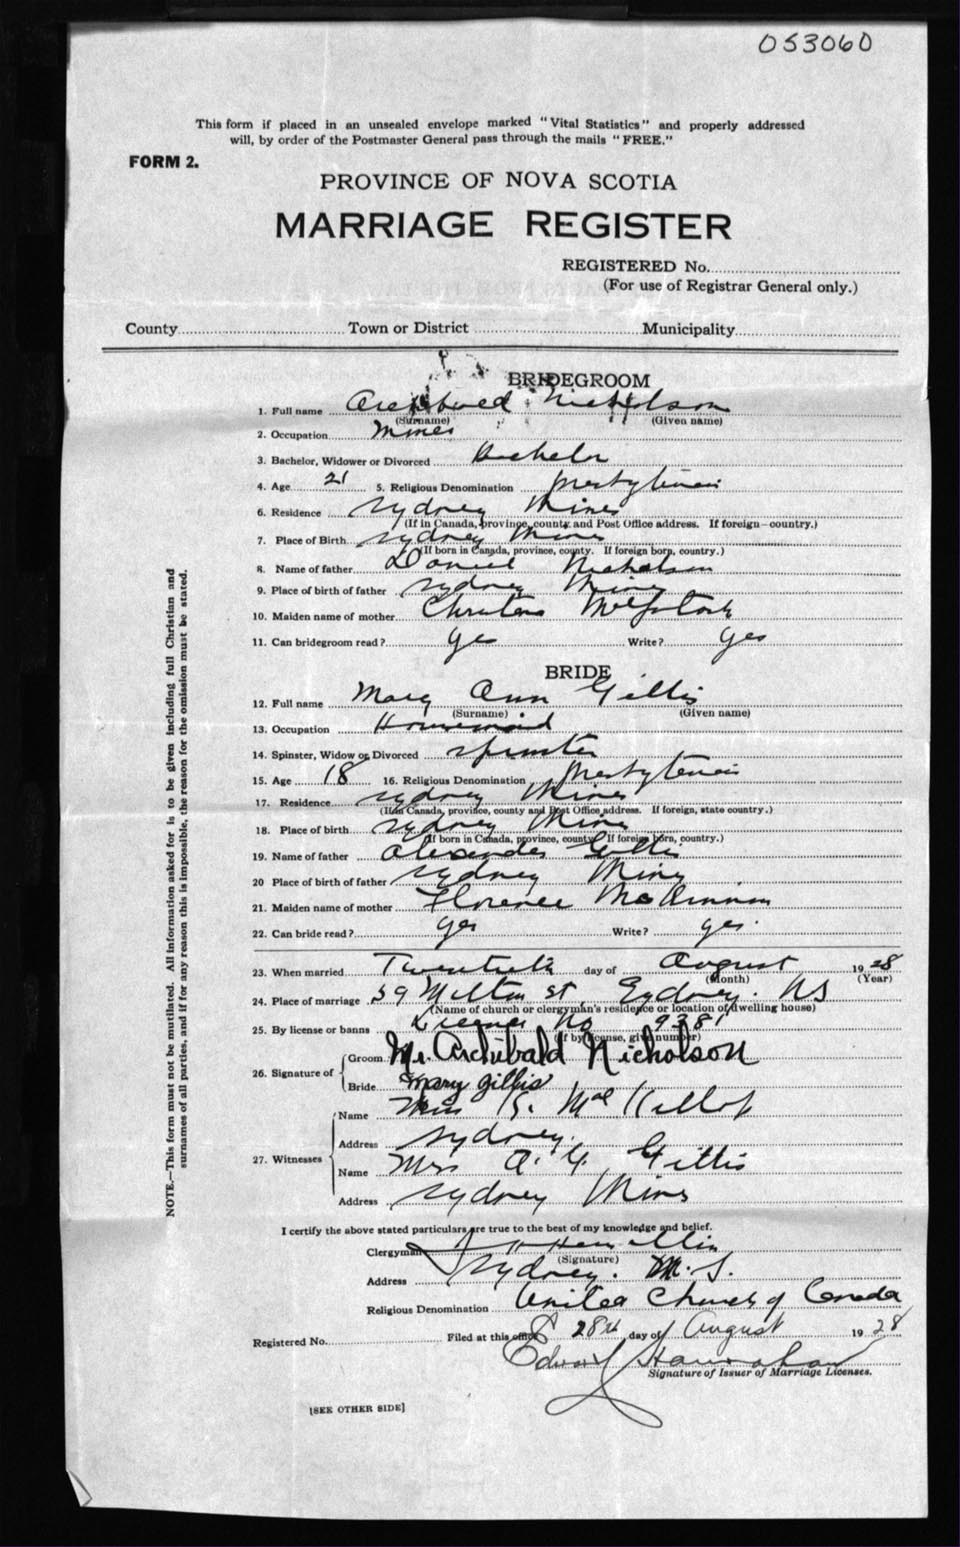 053060
This form if placed in an unsealed envelope marked "Vital Statistics" and properly addressed
will, by order of the Postmaster General pass through the mails "FREE."
FORM 2.
PROVINCE OF NOVA SCOTIA
MARRIAGE REGISTER
REGISTERED No.
(For use of Registrar General only.)
County Town or District Municipality
BRIDEGROOM
1. Full name Archibald Nicholson
(Surname) (Given name)
2. Occupation Miner
3. Bachelor, Widower or Divorced Bachelor
4. Age 21 5. Religious Denomination Presbyterian
6. Residence Sydney Mines
(If in Canada, province, county and Post Office address. If foreign—country.)
7. Place of Birth Sydney Mines
(If born in Canada, province, county. If foreign born, country.)
8. Name of father Daniel Nicholson
9. Place of birth of father Sydney Mines
10. Maiden name of mother McIntosh
11. Can bridegroom read? Yes Write? Yes
BRIDE
12. Full name Mary Ann Gillis
(Surname) (Given name)
13. Occupation Housemaid
14. Spinster, Widow or Divorced Spinster
15. Age 18 16. Religious Denomination Presbyterian
17. Residence Sydney Mines
(If in Canada, province, county and Post Office address. If foreign, state country.)
18. Place of birth Sydney Mines
(If born in Canada, province, county. If foreign born, country.)
19. Name of father Alexander Gillis
20 Place of birth of father Sydney Mines
21. Maiden name of mother Florence McKinnon
22. Can bride read? Yes Write? Yes.
23. When married Twentieth day of August 1928
(Month) (Year)
24. Place of marriage 59 Milton St, Sydney. NS
(Name of church or clergyman's residence or location of dwelling house)
25. By license or banns License No 9381
(If by license, give number)
26. Signature of Groom Mr. Archibald Nicholson
Bride Mary Gillis
27. Witnesses Name K. MacKillop
Address Sydney.
Name Mrs A. Y. Gillis
Address Sydney Mines
I certify the above stated particulars are true to the best of my knowledge and belief.
Clergyman
(Signature)
Address Sydney. N.S.
Religious Denomination United Church of Canada
Registered No. Filed at this office 28th day of August 1928
Edward
Signature of Issuer of Marriage Licenses.
[SEE OTHER SIDE]
NOTE.—This form must not be mutilated. All information asked for is to be given including full Christian and
surnames of all parties, and if for any reason this is impossible, the reason for the omission must be stated.